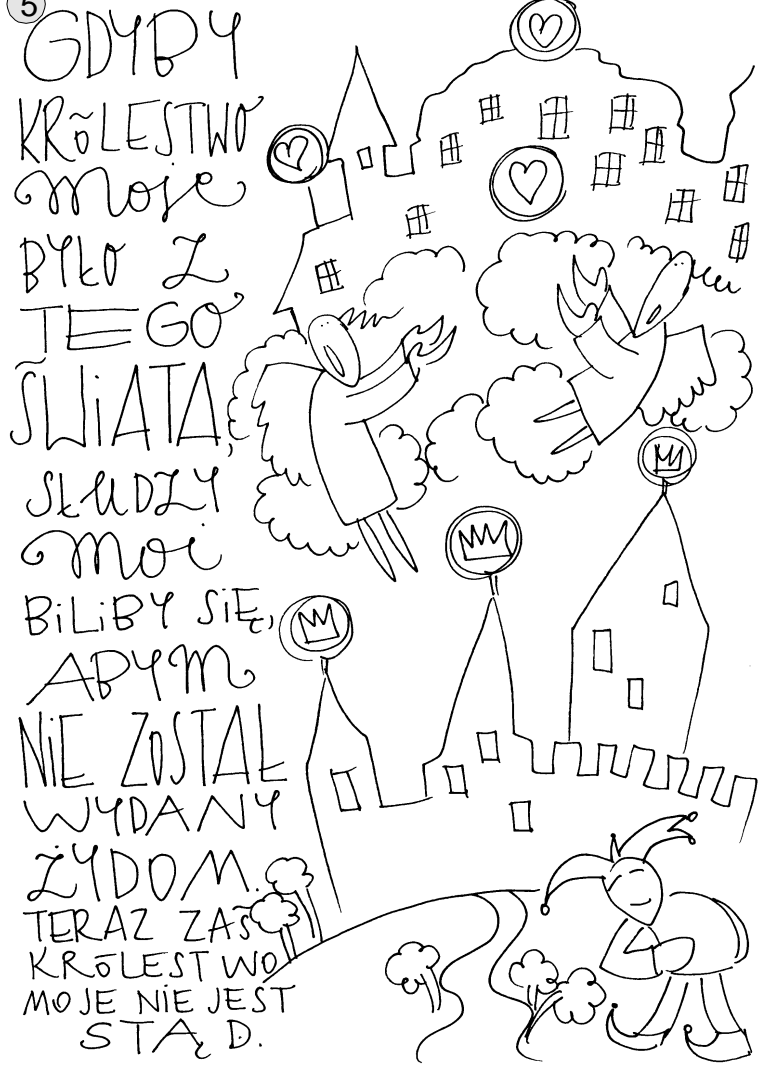 5
GDYBY
KRÓLESTWO
moje
BYŁO Z
TEGO
ŚWIATA,
SŁUDZY
moi
BiLiBY SIĘ,
ABYM
NiE ZOSTAŁ
WYDANY
ŻYDOM.
TERAZ ZAŚ
KRÓLESTWO
MOJE NiE JEST
STĄD.